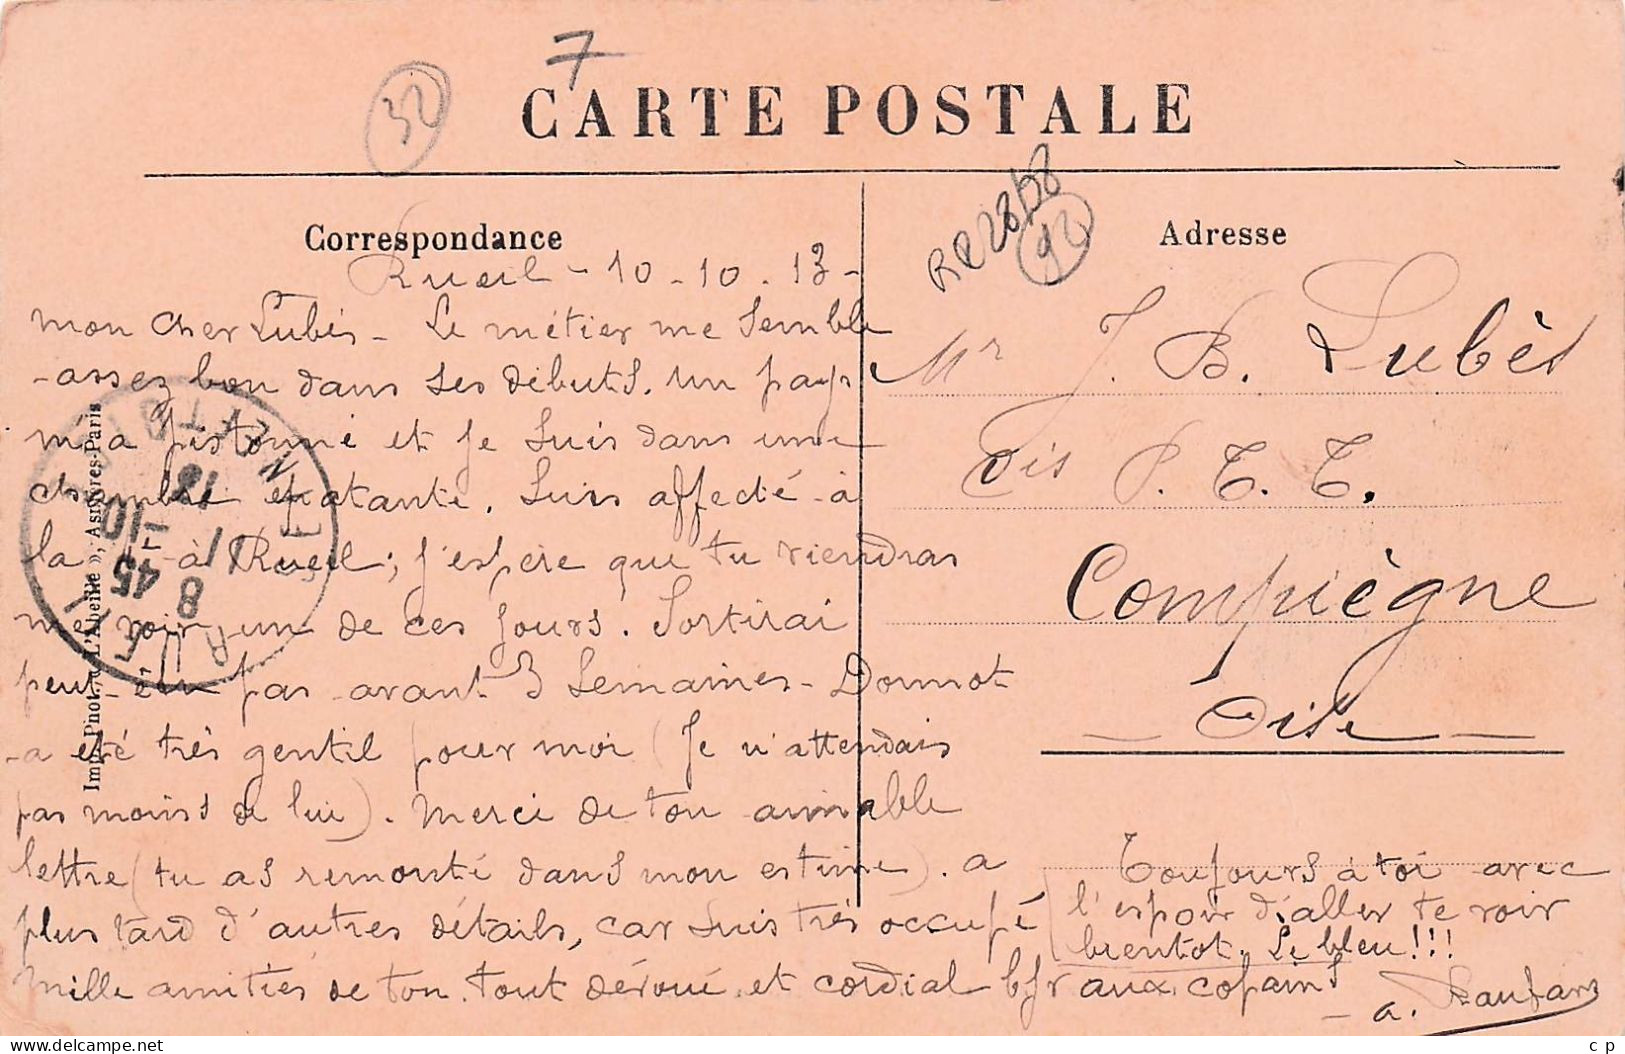 7
32
CARTE POSTALE
Correspondance
Adresse
RR 28658
92
Rueil - 10 - 10 . 13 -
mon cher Lubès - Le métier me semble
assez bon dans ses débuts. un pays
m'a pistonné et je suis dans une
chambre épatante. Suis affecté à
la à Rueil ; j'espère que tu viendras
me voir un de ces jours. Sortirai
peut-être pas avant 3 semaines - Dormot
a été très gentil pour moi (je n'attendais
pas moins de lui). Merci de ton aimable
lettre (tu as remonté dans mon estime). a
plus tard d'autres détails, car suis très occupé
Mille amitiés de ton tout dévoué et cordial bjr aux copains
Toujours à toi avec
l'espoir d'aller te voir
bientôt. Le bleu!!!
a.
Mr J. B. Lubès
Cis P. T. T.
Compiègne
Oise
Imp. Phot. « L'Abeille », Asnières-Paris
8 45
11 -10
13
c p